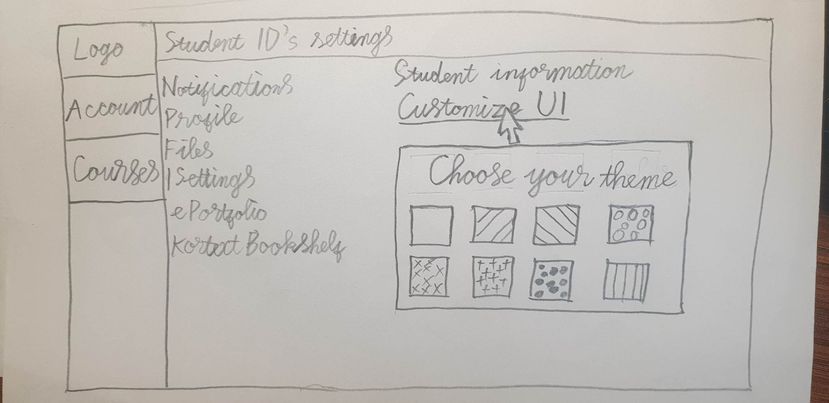 Logo
Student ID's settings
Account
Courses
Notifications
Profile
Files
| Settings
ePortfolio
Kortext Bookshelf
Student information
Customize UI
Choose your theme